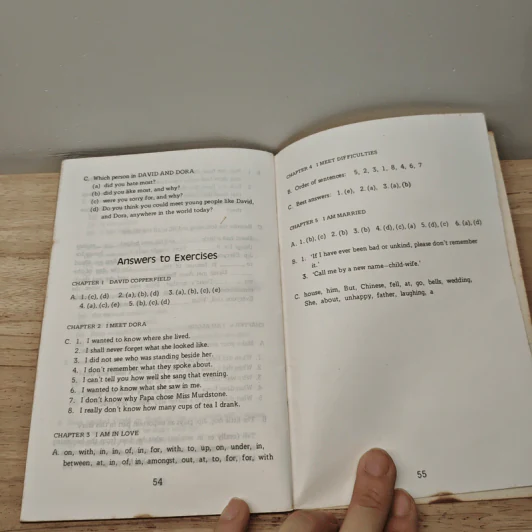 C. Which person in DAVID AND DORA
(a) did you hate most?
(b) did you like most, and why?
(c) were you sorry for, and why?
(d) Do you think you could meet young people like David,
and Dora, anywhere in the world today?
Answers to Exercises
CHAPTER 1 DAVID COPPERFIELD
A. 1. (c), (d) 2. (a), (b), (d) 3. (a), (b), (c), (e)
4. (a), (c), (e) 5. (b), (c), (d)
CHAPTER 2 I MEET DORA
C. 1. I wanted to know where she lived.
2. I shall never forget what she looked like.
3. I did not see who was standing beside her.
4. I don't remember what they spoke about.
5. I can't tell you how well she sang that evening.
6. I wanted to know what she saw in me.
7. I don't know why Papa chose Miss Murdstone.
8. I really don't know how many cups of tea I drank.
CHAPTER 3 I AM IN LOVE
A. on, with, in, in, of, in, for, with, to, up, on, under, in,
between, at, in, of, in, amongst, out, at, to, for, for, with
54
CHAPTER 4 I MEET DIFFICULTIES
B. Order of sentences: 5, 2, 3, 1, 8, 4, 6, 7
C. Best answers: 1. (e), 2. (a), 3. (a), (b)
CHAPTER 5 I AM MARRIED
A. 1. (b), (c) 2. (b) 3. (b) 4. (d), (c), (a) 5. (d), (c) 6. (a), (d)
B. 1. 'If I have ever been bad or unkind, please don't remember
it.'
3. 'Call me by a new name–child-wife.'
C. house, him, But, Chinese, fell, at, go, bells, wedding,
She, about, unhappy, father, laughing, a
55